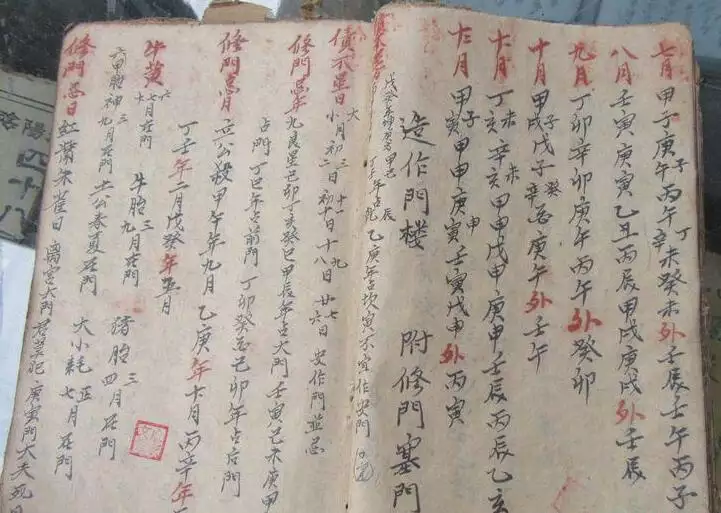 七月甲子庚子丙午丁未辛未癸未外壬辰壬午丙子
八月壬寅庚寅乙丑丙辰甲戌庚戌外壬辰
九月丁卯辛卯庚午丙午外癸卯
十月甲子甲戌戊子癸辛庚午外壬午
十一月丁未丁亥辛未辛亥甲戊申庚申壬辰丙辰乙亥
十二月甲子甲寅甲申庚申庚寅壬寅戊申外丙寅
造作門楼 附修門塞門
乙庚年占坎寅不宜作安門
債不星日 大月初三十一十九廿七 小月初二初十十八廿六日安作門並忌
修門忌年 九良星己卯丁亥癸巳甲辰年占大門壬寅己未庚甲
占門丁巳年占前門丁卯癸己卯年占后門
修門忌月 立公殺甲午年九月乙庚年十月丙辛年
丁壬年二月戊癸年五月
牛黄 十七月在門 牛胎三九月在門 猪胎三四月在門
六甲胎神三九月在門 土公春夏在門 大小耗正七月在門
修門忌日 紅觜朱雀日離宮大門 庚寅門大夫死日